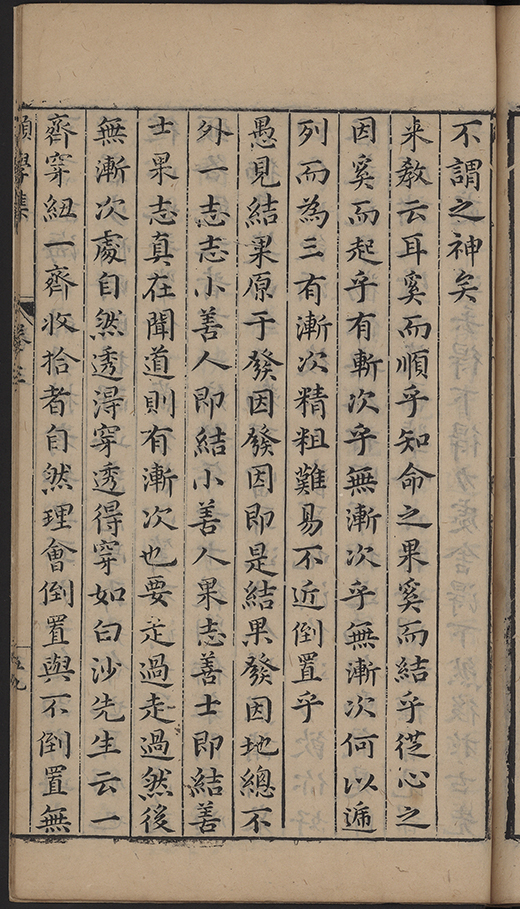 不謂之神矣
来教云耳奚而順乎知命之果奚而結乎從心之
因奚而起乎有漸次乎無漸次乎無漸次何以逓
列而為三有漸次精粗難易不近倒置乎
愚見結果原于發因發因即是結果發因地總不
外一志志小善人即結小善人果志善士即結善
士果志真在聞道則有漸次也要走過走過然後
無漸次處自然透淂穿透得穿如白沙先生云一
齊穿紐一齊收拾者自然理會倒置與不倒置無